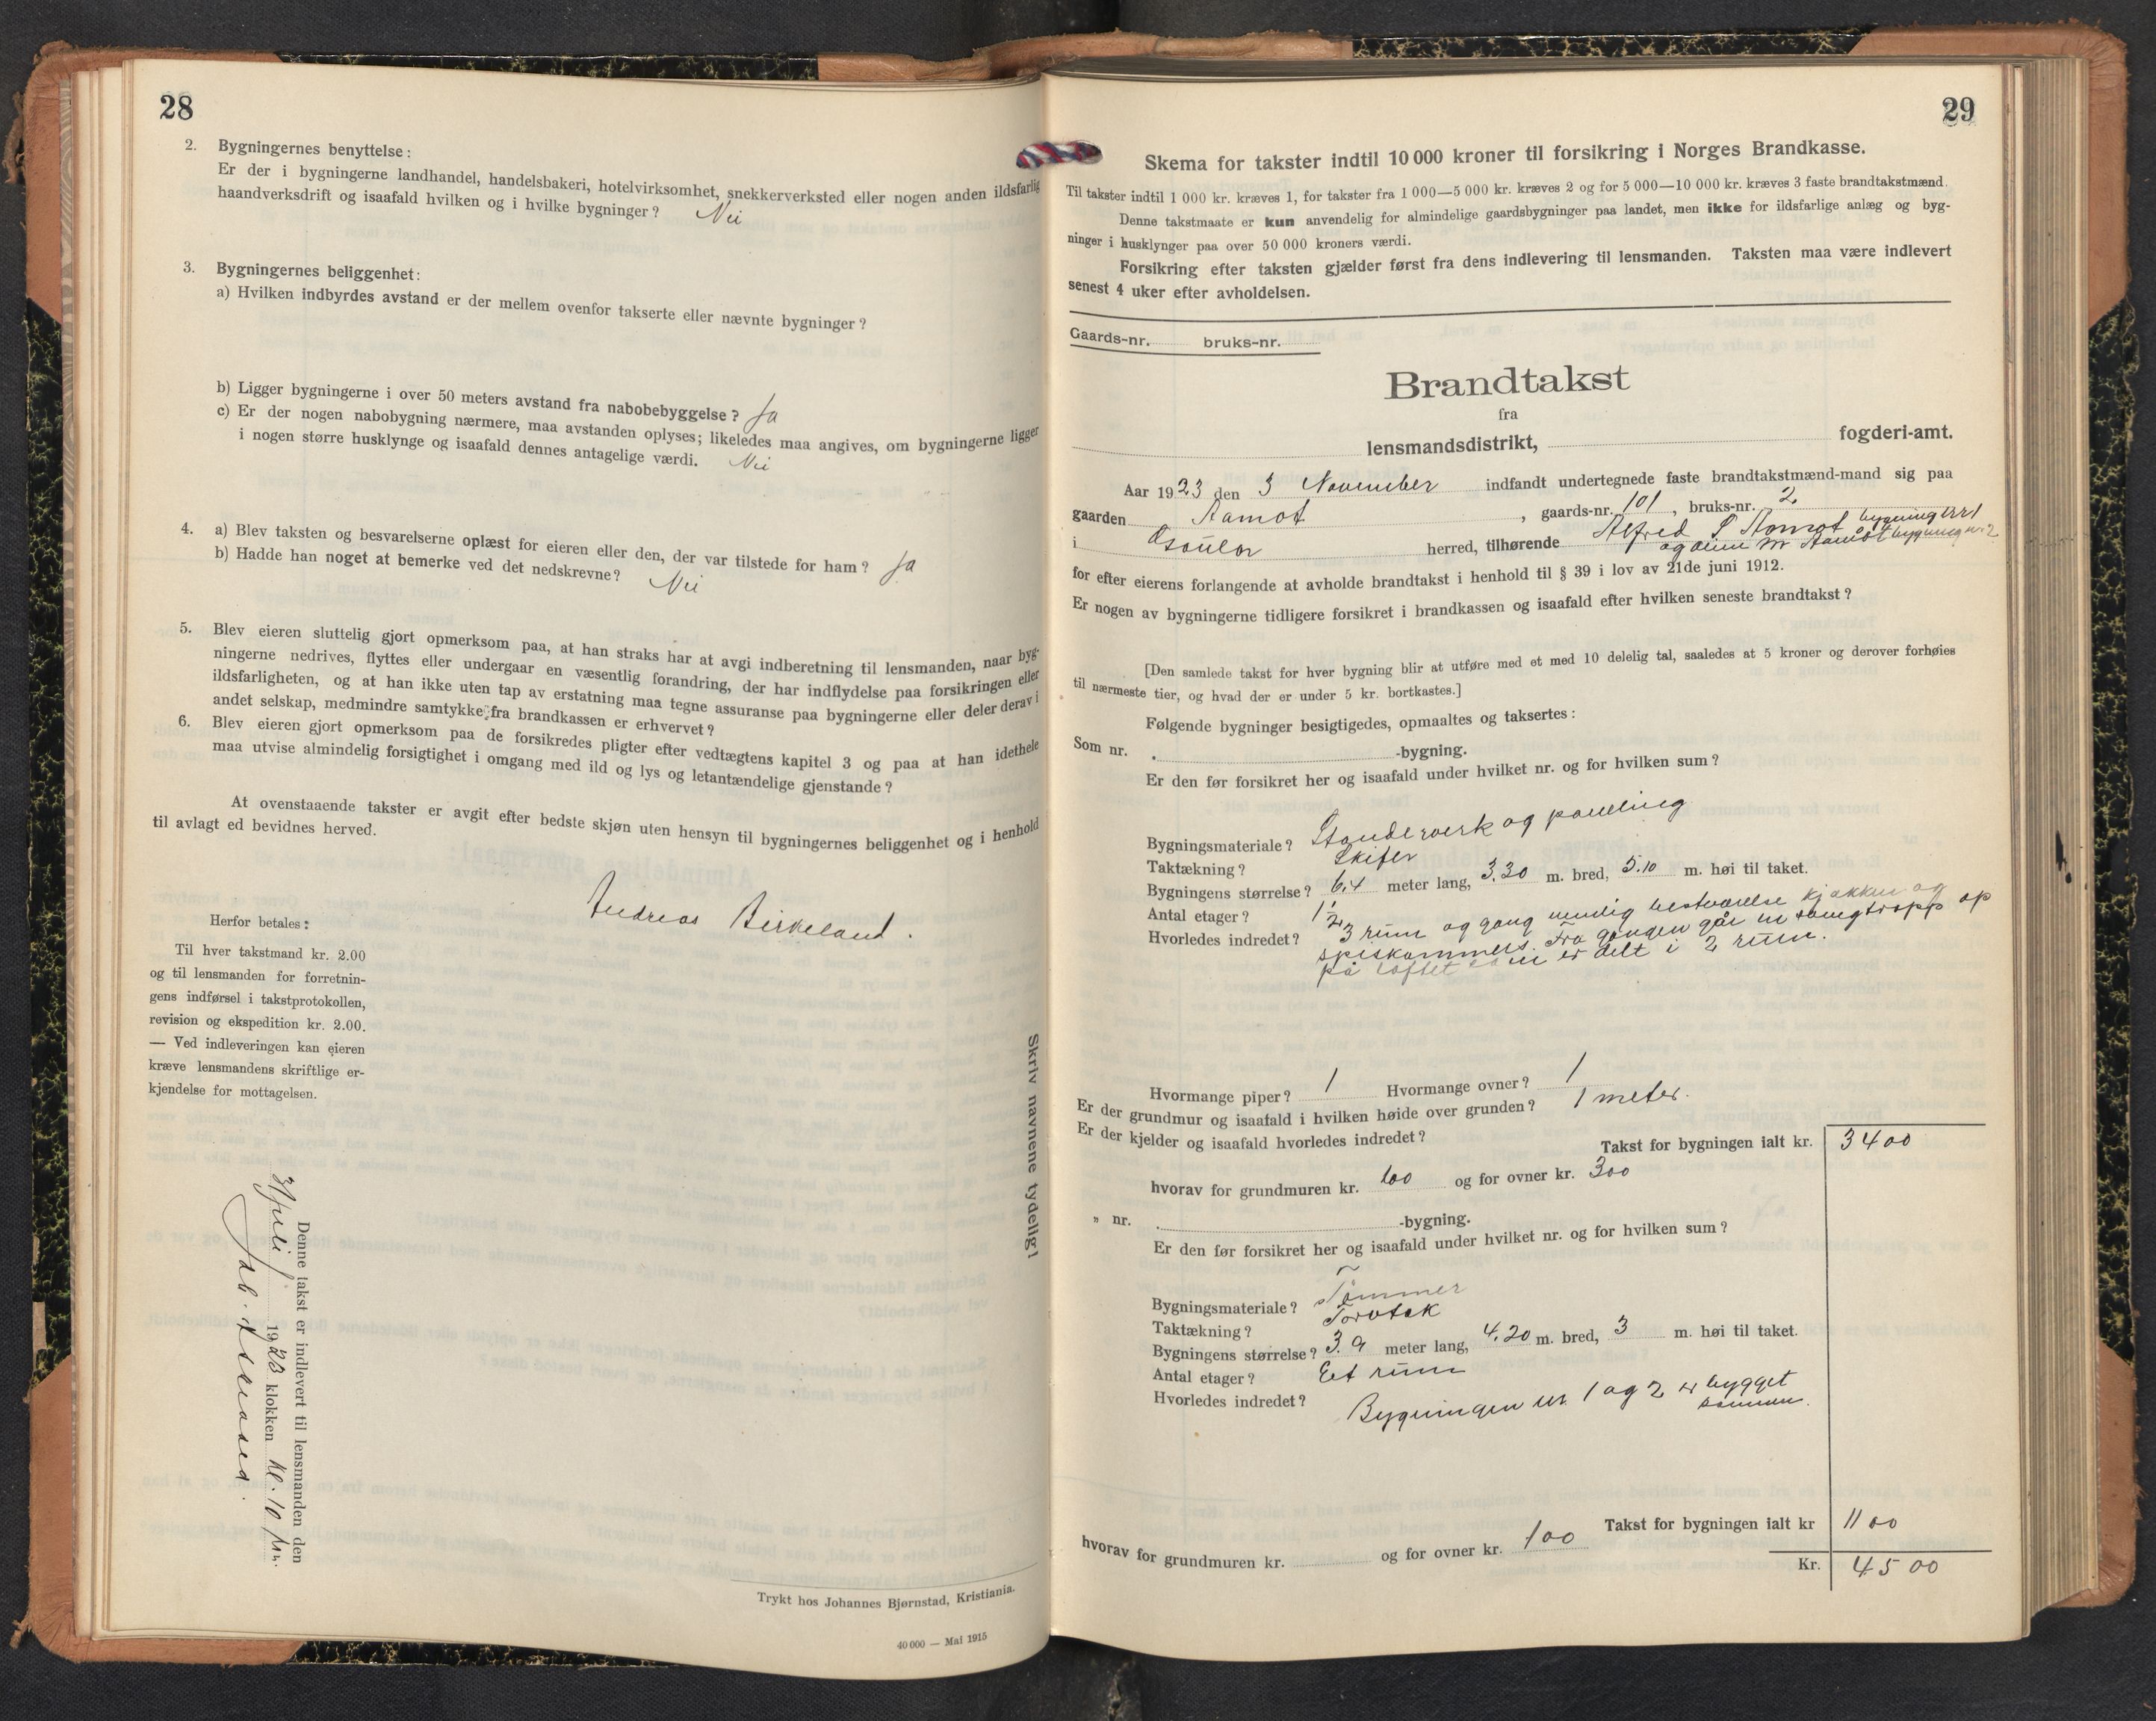 28
2. Bygningernes benyttelse:
Er der i bygningerne landhandel, handelsbakeri, hotelvirksomhet, snekkerverksted eller nogen anden ildsfarlig
haandverksdrift og isaafald hvilken og i hvilke bygninger? Nei
3. Bygningernes beliggenhet:
a) Hvilken indbyrdes avstand er der mellem ovenfor takserte eller nævnte bygninger?
b) Ligger bygningerne i over 50 meters avstand fra nabobebyggelse? Ja
c) Er der nogen nabobygning nærmere, maa avstanden oplyses; likeledes maa angives, om bygningerne ligger
i nogen større husklynge og isaafald dennes antagelige værdi. Nei
4. a) Blev taksten og besvarelserne oplæst for eieren eller den, der var tilstede for ham? Ja
b) Hadde han noget at bemerke ved det nedskrevne? Nei
5. Blev eieren sluttelig gjort opmerksom paa, at han straks har at avgi indberetning til lensmanden, naar byg-
ningerne nedrives, flyttes eller undergaar en væsentlig forandring, der har indflydelse paa forsikringen eller
ildsfarligheten, og at han ikke uten tap av erstatning maa tegne assuranse paa bygningerne eller deler derav i
andet selskap, medmindre samtykke fra brandkassen er erhvervet?
6. Blev eieren gjort opmerksom paa de forsikredes pligter efter vedtægtens kapitel 3 og paa at han idethele
maa utvise almindelig forsigtighet i omgang med ild og lys og letantændelige gjenstande?
At ovenstaaende takster er avgit efter bedste skjøn uten hensyn til bygningernes beliggenhet og i henhold
til avlagt ed bevidnes herved.
Andreas Birkeland.
Herfor betales:
Til hver takstmand kr. 2.00
og til lensmanden for forretnin-
gens indførsel i takstprotokollen,
revision og ekspedition kr. 2.00.
— Ved indleveringen kan eieren
kræve lensmandens skriftlige er-
kjendelse for mottagelsen.
Denne takst er indlevert til lensmanden den
3/juli 1923 klokken kl. 10 fm.
Jab.
Skriv navnene tydelig!
Trykt hos Johannes Bjørnstad, Kristiania.
40 000 — Mai 1915
29
Skema for takster indtil 10 000 kroner til forsikring i Norges Brandkasse.
Til takster indtil 1 000 kr. kræves 1, for takster fra 1 000—5 000 kr. kræves 2 og for 5 000—10 000 kr. kræves 3 faste brandtakstmænd.
Denne takstmaate er kun anvendelig for almindelige gaardsbygninger paa landet, men ikke for ildsfarlige anlæg og byg-
ninger i husklynger paa over 50 000 kroners værdi.
Forsikring efter taksten gjælder først fra dens indlevering til lensmanden. Taksten maa være indlevert
senest 4 uker efter avholdelsen.
Gaards-nr. bruks-nr.
Brandtakst
fra
lensmandsdistrikt, fogderi-amt.
Aar 1923 den 3 November indfandt undertegnede faste brandtakstmænd-mand sig paa
gaarden Aamot, gaards-nr. 101, bruks-nr. 2
i herred, tilhørende Alfred S Aamot bygning nr 1
og M Aamot bygning nr 2
for efter eierens forlangende at avholde brandtakst i henhold til § 39 i lov av 21de juni 1912.
Er nogen av bygningerne tidligere forsikret i brandkassen og isaafald efter hvilken seneste brandtakst?
[Den samlede takst for hver bygning blir at utføre med et med 10 delelig tal, saaledes at 5 kroner og derover forhøies
til nærmeste tier, og hvad der er under 5 kr. bortkastes.]
Følgende bygninger besigtigedes, opmaaltes og taksertes:
Som nr. -bygning.
Er den før forsikret her og isaafald under hvilket nr. og for hvilken sum?
Bygningsmateriale? Standerverk og pandling
Taktækning? Skifer
Bygningens størrelse? 6.4 meter lang, 3.30 m. bred, 5.10 m. høi til taket.
Antal etager? 1½
Hvorledes indredet? 3 rum og gang nemlig bestuelse kjøkken og
spiskammers. Fra gangen går en svingtrapp op
på loftet som er delt i 2 rum.
Hvormange piper? 1 Hvormange ovner? 1
Er der grundmur og isaafald i hvilken høide over grunden? 1 meter.
Er der kjelder og isaafald hvorledes indredet?
Takst for bygningen ialt kr. 3400
hvorav for grundmuren kr. 600 og for ovner kr. 300
„ nr. -bygning.
Er den før forsikret her og isaafald under hvilket nr. og for hvilken sum?
Bygningsmateriale? Tømmer
Taktækning? Torvtak
Bygningens størrelse? 3.9 meter lang, 4.20 m. bred, 3 m. høi til taket.
Antal etager? Et rum
Hvorledes indredet? Bygningen nr 1 og 2 er bygget
sammen.
Takst for bygningen ialt kr 1100
hvorav for grundmuren kr. og for ovner kr. 100
Kr. 4500